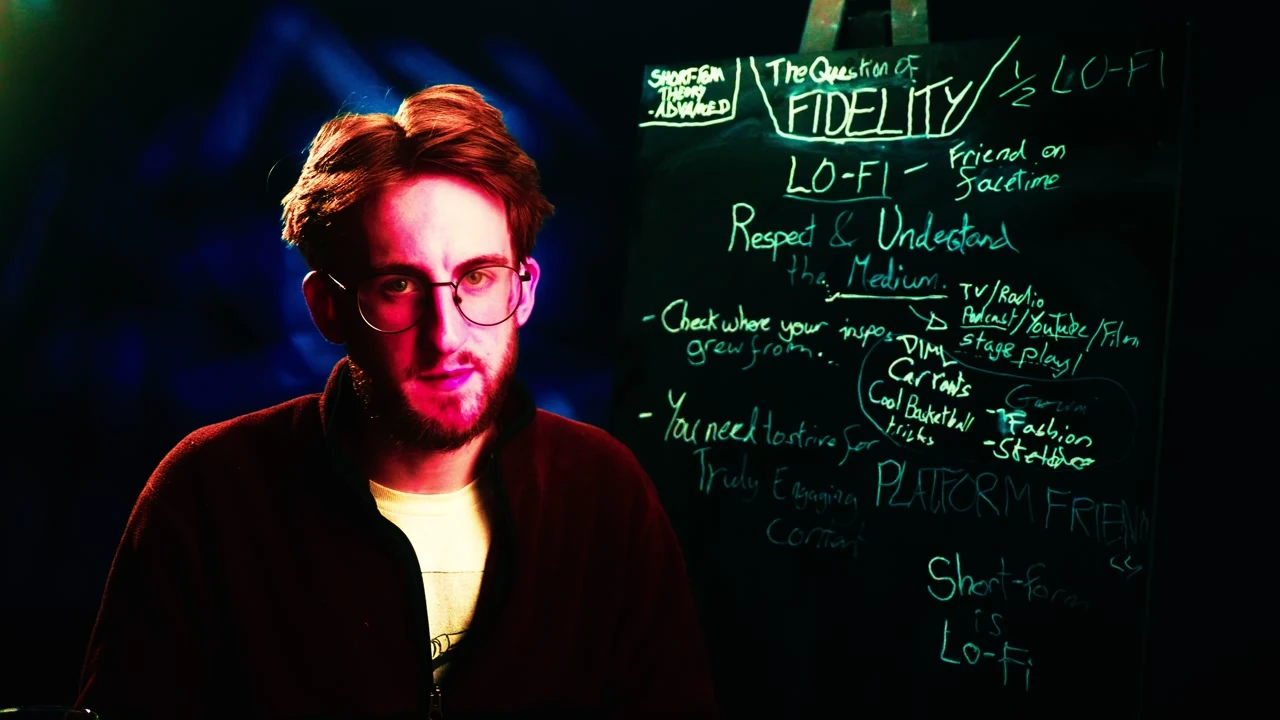 SHORT-FORM
THEORY
-ADVANCED
The Question of
FIDELITY
1/2 LO-FI
LO-FI - Friend on
facetime
Respect & Understand
the Medium.
TV/Radio
Podcast/YouTube/Film
stage plays/
- Check where your inspos
grew from...
DIML
Carrots
Cool Basketball
tricks
- Fashion
- You need to strive for
Truly Engaging
Content
PLATFORM FRIEND
Short-form
is
Lo-Fi